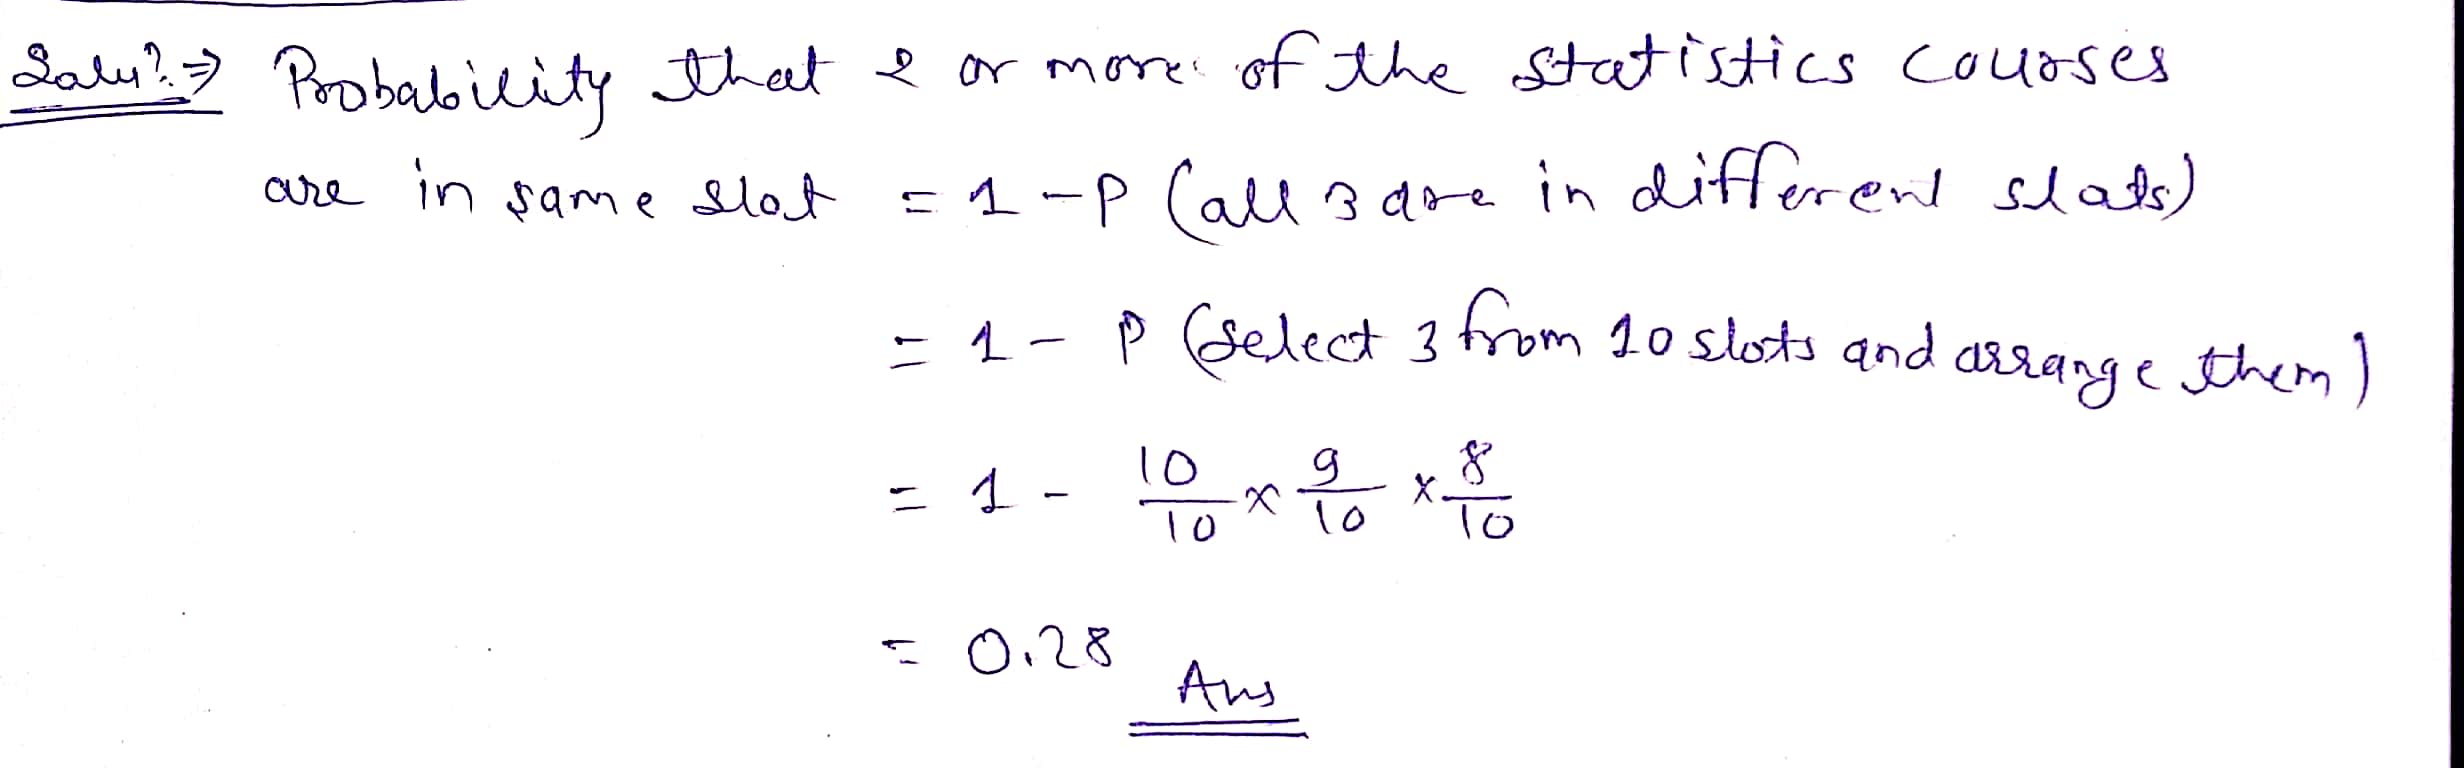 Solu? ⇒ Probability that 2 or more of the statistics courses
are in same slot = 1 - P (all 3 are in different slots)
= 1 - P (select 3 from 10 slots and arrange them)
= 1 - 10/10 × 9/10 × 8/10
= 0.28 Ans